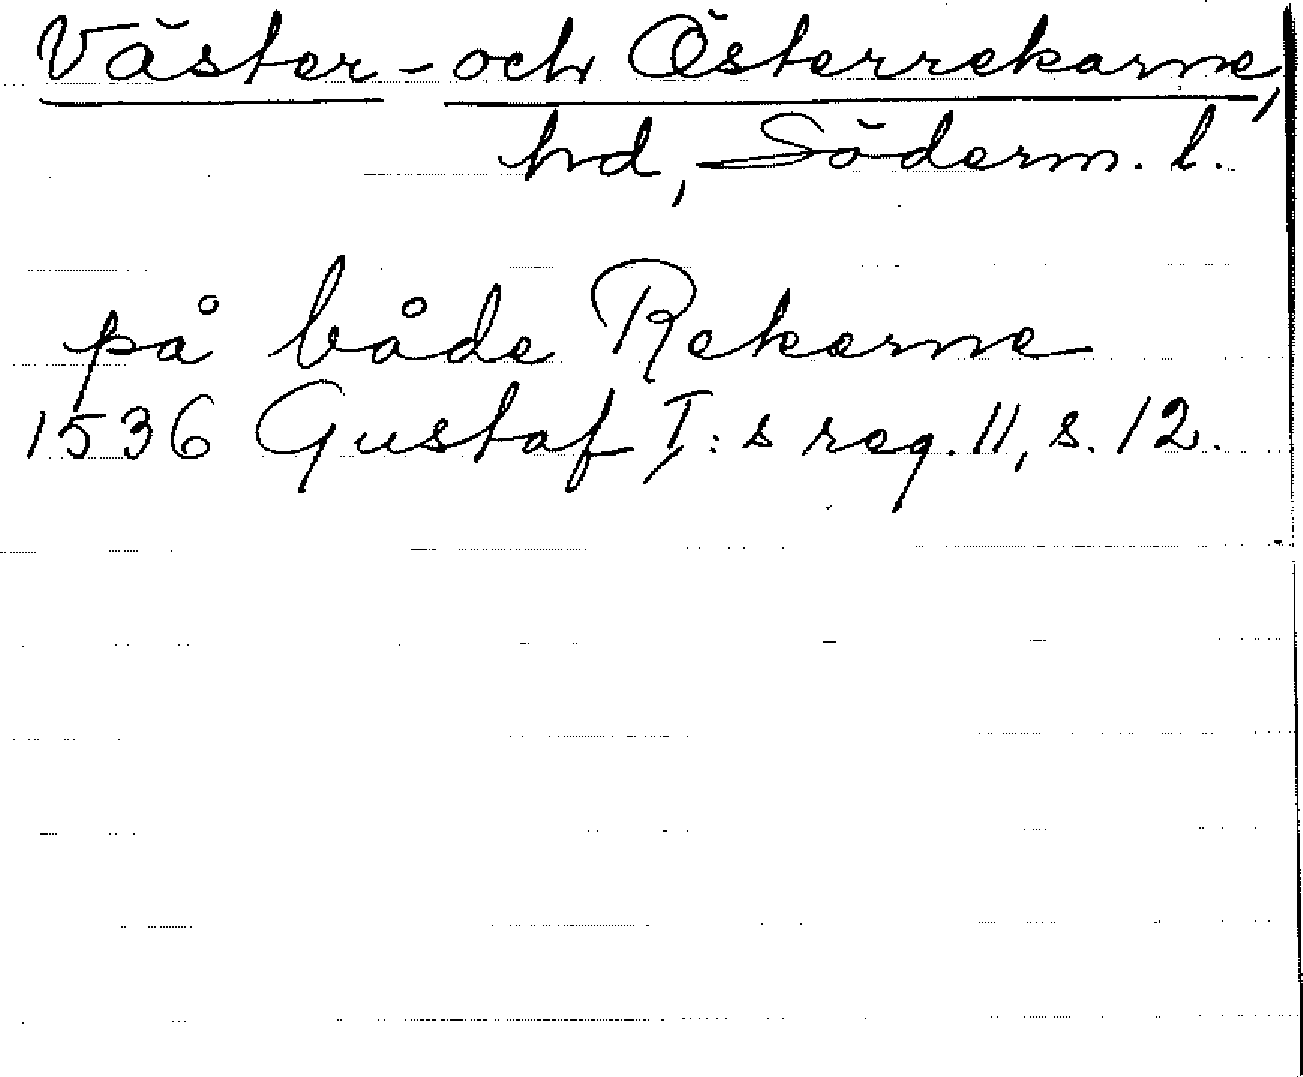 Väster- och Österrekarne,
hd, Söderm. l.
på både Rekarne
1536 Gustaf I:s reg. 11, s. 12.